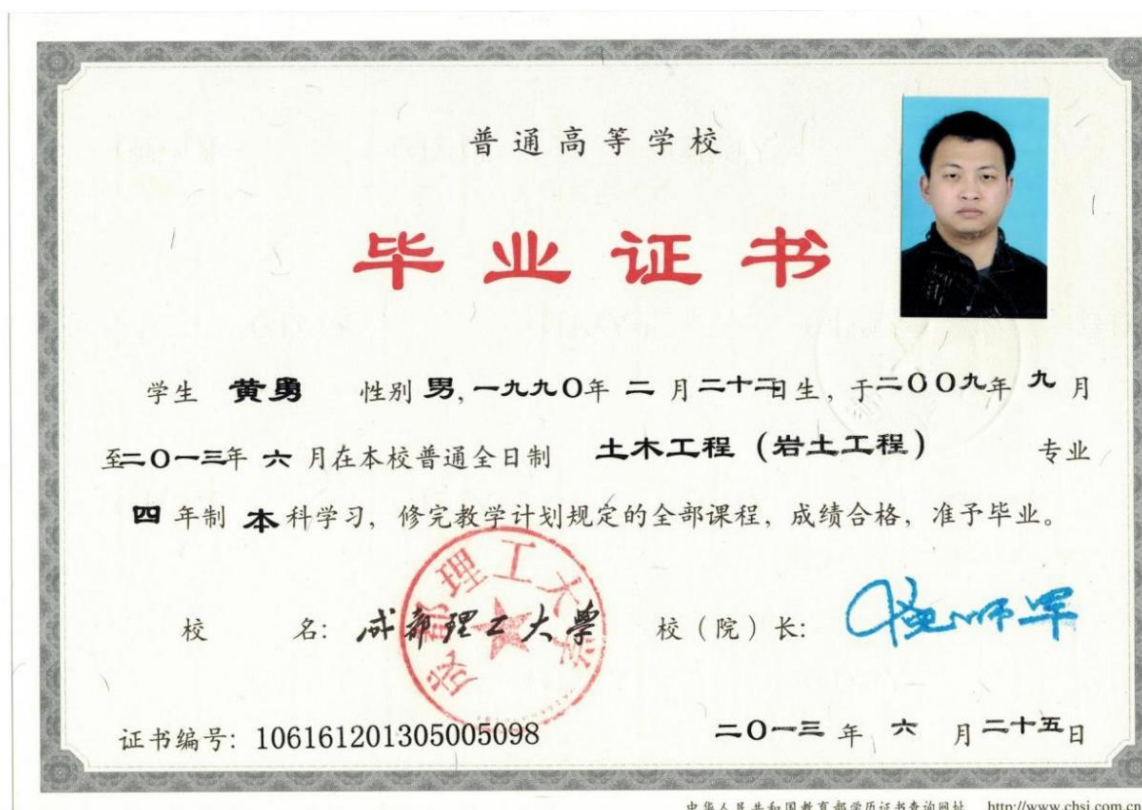 普通高等学校
毕业证书
学生 黄勇 性别 男,一九九〇年 二 月 二十二日生,于二〇〇九年 九 月
至二〇一三年 六 月在本校普通全日制 土木工程（岩土工程） 专业
四 年制 本 科学习，修完教学计划规定的全部课程，成绩合格，准予毕业。
校 名：成都理工大学 校（院）长：
成都理工大学
证书编号：106161201305005098 二〇一三 年 六 月 二十五日
中华人民共和国教育部学历证书查询网址 http://www.chsi.com.cn